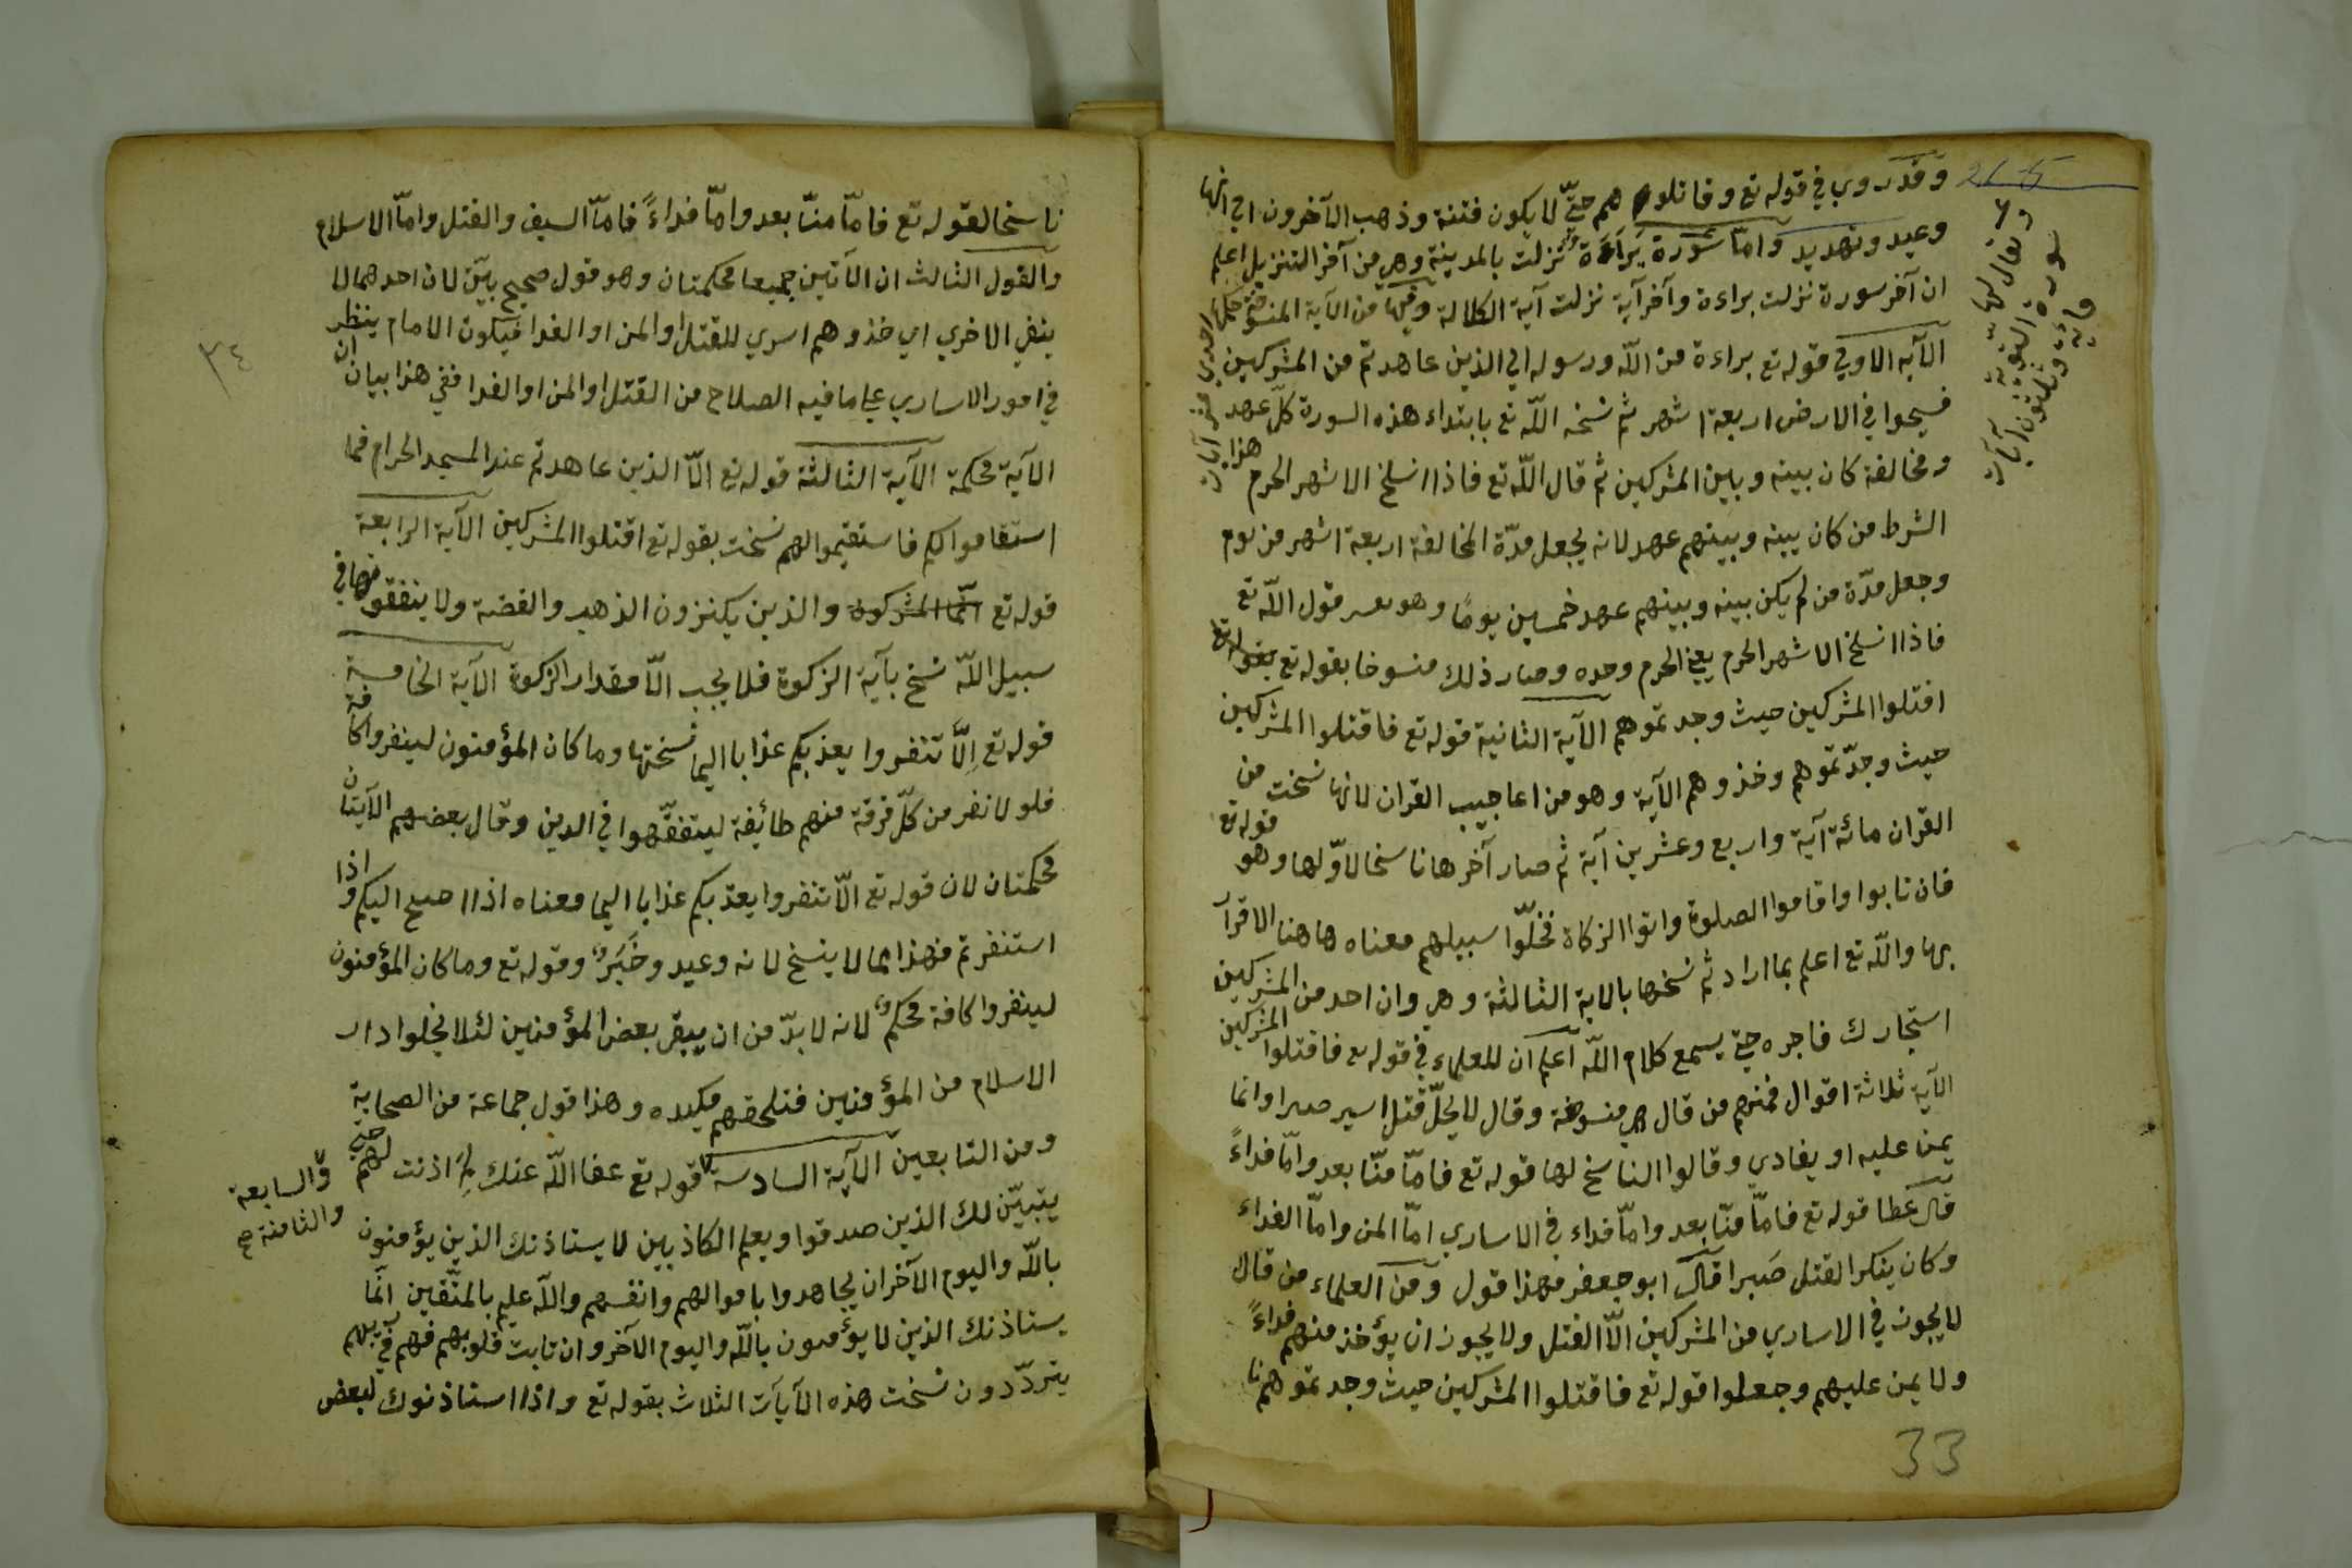 وقد روي في قوله تع وقاتلوهم حتّي لا يكون فتنة وذهب الآخرون الي انها
وعيد وتهديد وامّا سورة بَرَآءَة نزلت بالمدينة وهي من آخر التنزيل اعلم
ان آخر سورة نزلت براءة وآخر آية نزلت آية الكلالة وفيها من الآية المنسوخة حكمها احدي عشر آيات
الآيه الاولي قوله تع براءة من اللّه ورسوله الي الذين عاهدتم من المشركين
فسيحوا في الارض اربعة اشهر ثم نسخه اللّه تع بابتداء هذه السورة كلّ عهد هذا
ومخالفة كان بينه وبين المشركين ثم قال اللّه تع فاذا انسلخ الاشهر الحرم
الشرط من كان بينه وبينهم عهد لانه يجعل مدّة المخالفة اربعة اشهر من يوم
وجعل مدّة من لم يكن بينه وبينهم عهد خمسين يومًا وهو قول اللّه تع
فاذا انسلخ الاشهر الحرم يعني الحرم وحده وصار ذلك منسوخا بقوله تع
اقتلوا المشركين حيث وجدتموهم الآية الثانية قوله تع فاقتلوا المشركين
حيث وجدّتموهم وخذوهم الآية وهو من اعاجيب القران لانها نسخت من
القران مائة آية واربع وعشرين آية ثم صار آخرها ناسخا لاوّلها وهو قوله تع
فان تابوا واقاموا الصلوة واتوا الزكاة فخلّوا سبيلهم معناه هاهنا الاقرآ
بها واللّه تع اعلم بما اراد ثم نسخها بالاية الثالثة وهي وان احد من المشركين
استجارك فاجره حتي يسمع كلام اللّه اعلم ان للعلماء في قوله تع فاقتلوا المشركين
الآية ثلاثة اقوال فمنهم من قال هي منسوخة وقال لا يحلّ قتل اسير صبرا وانما
يمن عليه او يفادي وقالوا الناسخ لها قوله تع فامّا منّا بعد وامّا فداءً
قال عطا قوله تع فامّا منّا بعد وامّا فداء في الاساري امّا المن وامّا الفداء
وكان ينكر القتل صَبرا قال ابو جعفر فهذا قول ومن العلماء من قال
لا يجوز في الاساري من المشركين الّا القتل ولا يجوز ان يؤخذ منهم فداءً
ولا يمن عليهم وجعلوا قوله تع فاقتلوا المشركين حيث وجدتموهم
33
سورة التوبة
مائة وثلثون آيات
ناسخا لقوله تع فامّا منّا بعد وامّا فداءً فامّا السيف والقتل وامّا الاسلام
والقول الثالث ان الآتين جميعا محكمتان وهو قول صحيح بيّن لان احدهما لا
ينفي الاخري اي خذوهم اسري للقتل او المن او الفدا فيكون الامام ينظر
في امور الاساري علي ما فيه الصلاح من القتل او المن او الفدا ففي هذا بيان ان
الآية محكمة الآية الثالثة قوله تع الّا الذين عاهدتم عند المسجد الحرام فما
استقاموا لكم فاستقيموا لهم نسخت بقوله تع اقتلوا المشركين الآية الرابعة
قوله تع انّما المشركون والذين يكنزون الذهب والفضة ولا ينفقونها في
سبيل اللّه نسخ بآية الزكوة فلا يجب الّا مقدار الزكوة الآية الخامسة
قوله تع إلّا تنفروا يعذبكم عذابا اليما نسختها وما كان المؤمنون لينفروا كافة
فلولا نفر من كلّ فرقة منهم طائفة ليتفقّهوا في الدين وقال بعضهم الآيتان
محكمتان لان قوله تع الّا تنفروا يعذبكم عذابا اليما معناه اذا احتيج اليكم واذا
استنفرتم فهذا مما لا ينسخ لانه وعيد وخَبَرٌ وقوله تع وما كان المؤمنون
لينفروا كافة محكمٌ لانه لا بدّ من ان يبقي بعض المؤمنين لئلا تخلوا دار
الاسلام من المؤمنين فتلحقهم مكيده وهذا قول جماعة من الصحابة
ومن التابعين الآية السادسة قوله تع عفا اللّه عنك لِمَ اذنت لهم حتي
والسابعة والثامنة صح
يتبيّن لك الذين صدقوا ويعلم الكاذبين لا يستاذنك الذين يؤمنون
باللّه واليوم الآخر ان يجاهدوا باموالهم وانفسهم واللّه عليم بالمتّقين انّما
يستاذنك الذين لا يؤمنون باللّه واليوم الآخر وان تابت قلوبهم فهم في ريبهم
يتردّدون نسخت هذه الآيات الثلاث بقوله تع واذا استاذنوك لبعض
٣٤